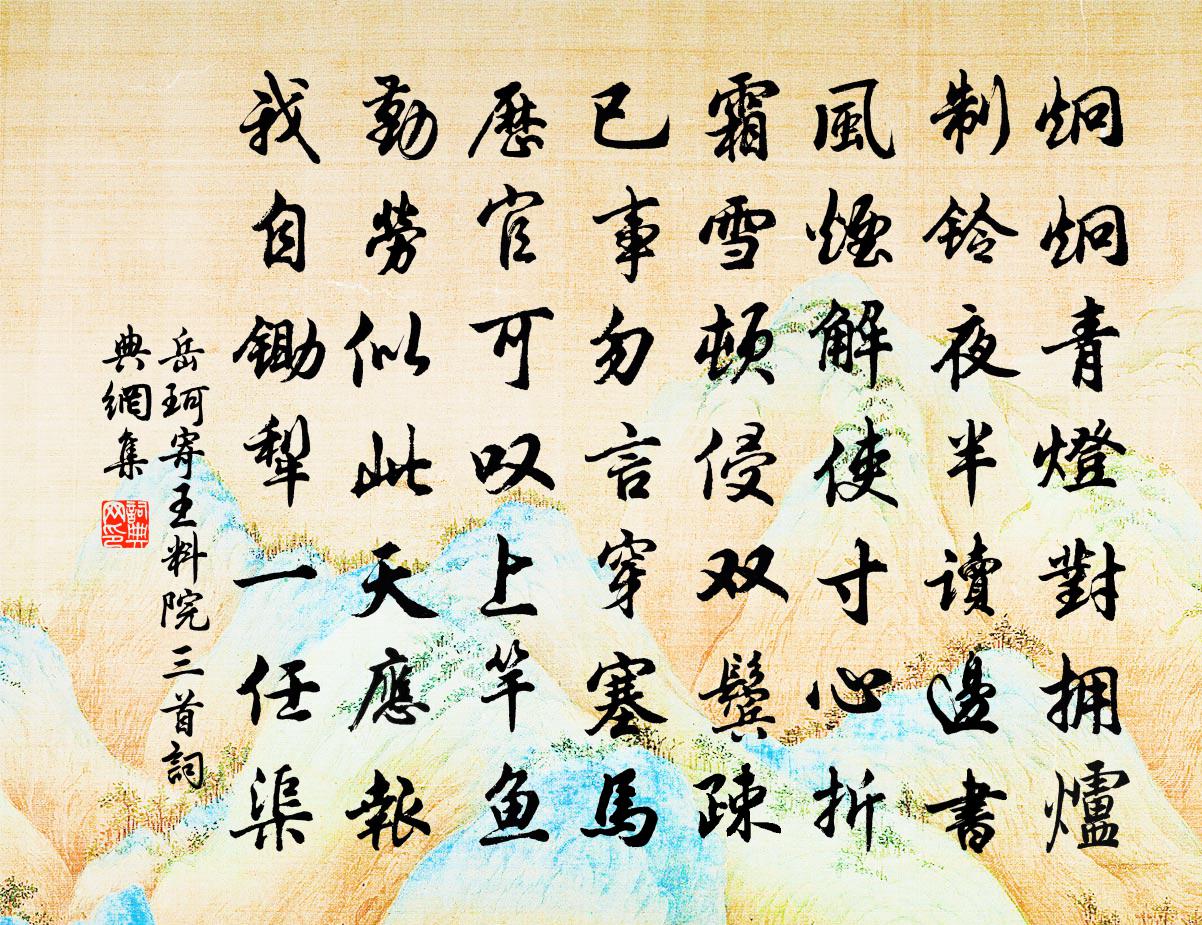 炯炯青燈對拥爐
制鈴夜半读邊書
風煙解使寸心折
霜雪頓侵双鬓疎
已事勿言穿塞馬
歷官可叹上竿鱼
勤勞似此天應報
我自鋤犁一任渠
岳珂寄王料院三首詞
典網集
詞典网印